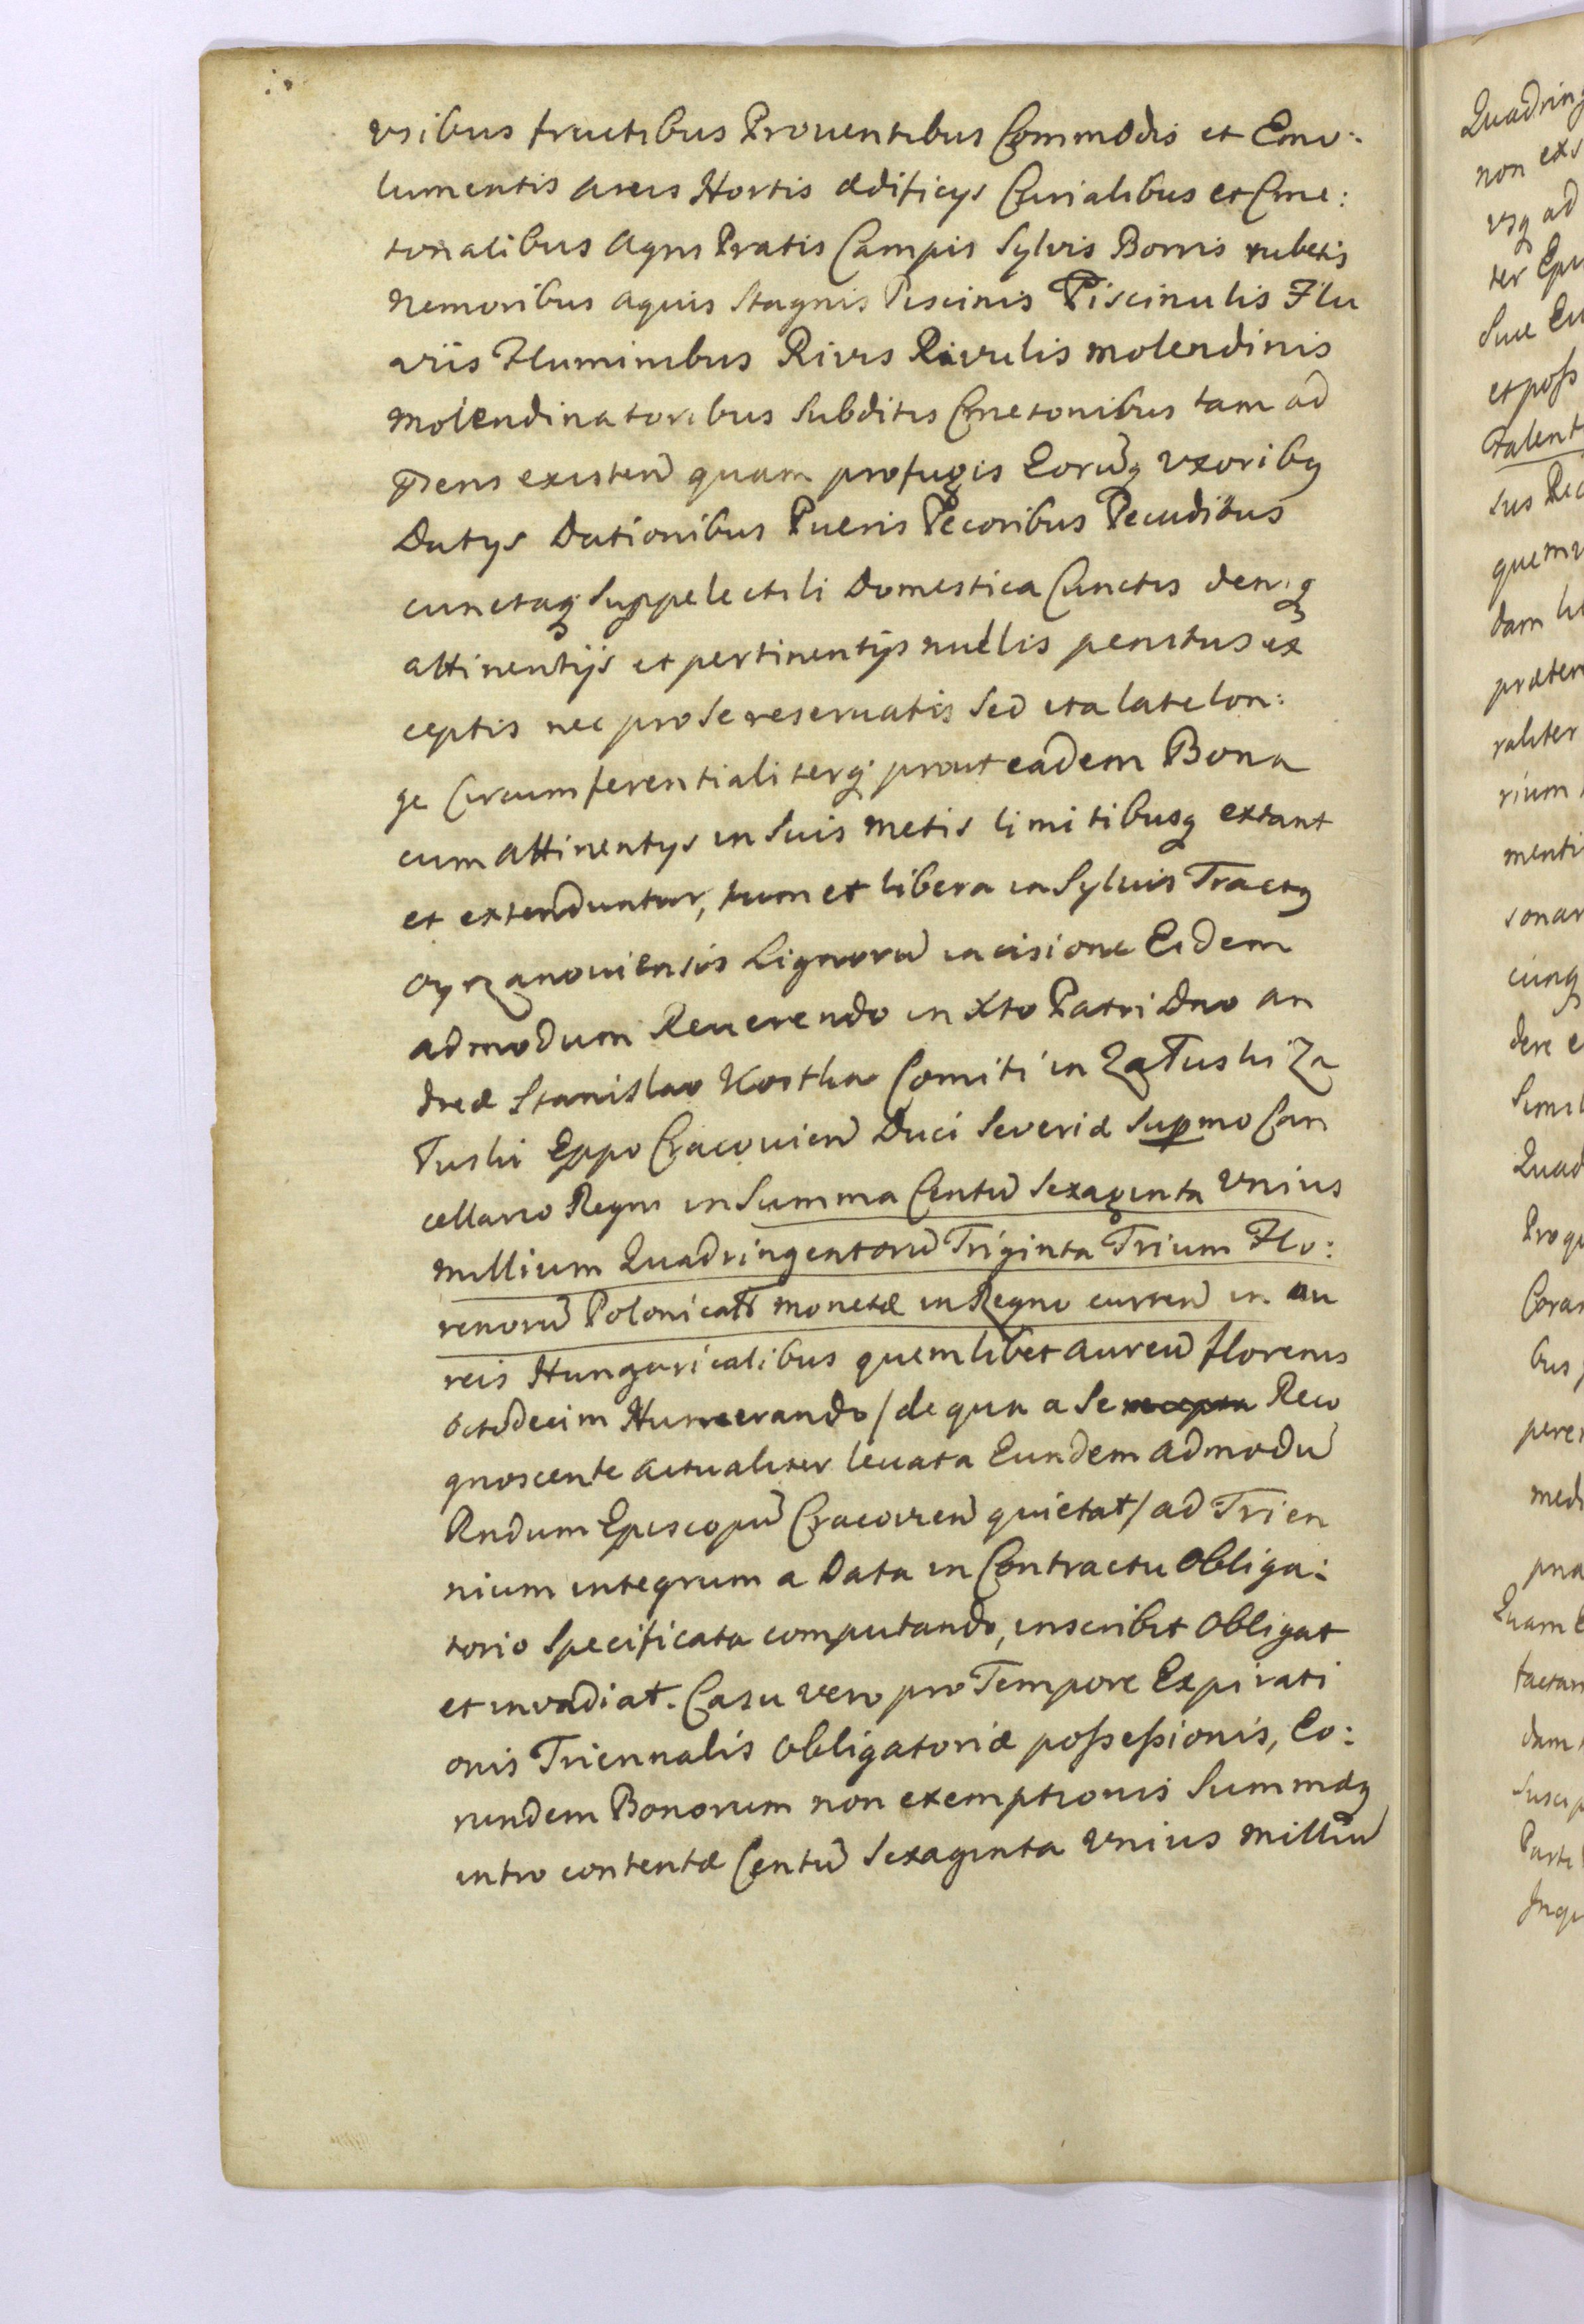 vsibus fructibus Prouentibus Commodis et Emo:
lumentis areis Hortis ædificys Curialibus et Cme:
tonalibus Agris Pratis Campis Sylvis Borris rubetis
Nemoribus aquis Stagnis Piscinis Piscinulis Flu
viis Fluminibus Rivis Rivulis molendinis
Molendinatoribus Subditis Cmetonibus tam ad
præns existen quam profugis Eorūq vxoribq
Datys Dationibus Pueris Pecoribus Pecudibus
cunctaq Suppelectili Domestica Cunctis deniq
attinentijs et pertinentijs nullis penitus ex
ceptis nec pro se reseruatis Sed ita late lon:
ge Circumferentialiterq prout eadem Bona
cum attinentys in Suis metis limitibusq extant
et extenduntur, tum et libera in Syluis Tractq
Cyrzanouiensis Lignorū incisione Eidem
admodum Reuerendo in Xto Patri Dno An
dreæ Stanislao Kostka Comiti in Załuski Za
łuski Eppo Cracouien Duci Severiæ Supmo Can
cellario Regni in Summa Centū Sexaginta Vnius
millium Quadringentorū Triginta Trium Flo:
renorū Polonicalī monetæ in Regno curren in au
reis Hungaricalibus quemlibet aureū florenis
octodecim Numerando / de qua a Se recepta Reco
gnoscente actualiter leuata Eundem admodū
Rndum Episcopū Cracovien quietat / ad Trien
nium integrum a Data in Contractu Obliga:
torio Specificata computando, inscribit Obligat
et invadiat. Casu vero pro Tempore Expirati
onis Triennalis Obligatoriæ poßeßionis, Eo:
rundem Bonorum non exemptionis Summæq
intro contentæ Centū Sexaginta Vnius milliū